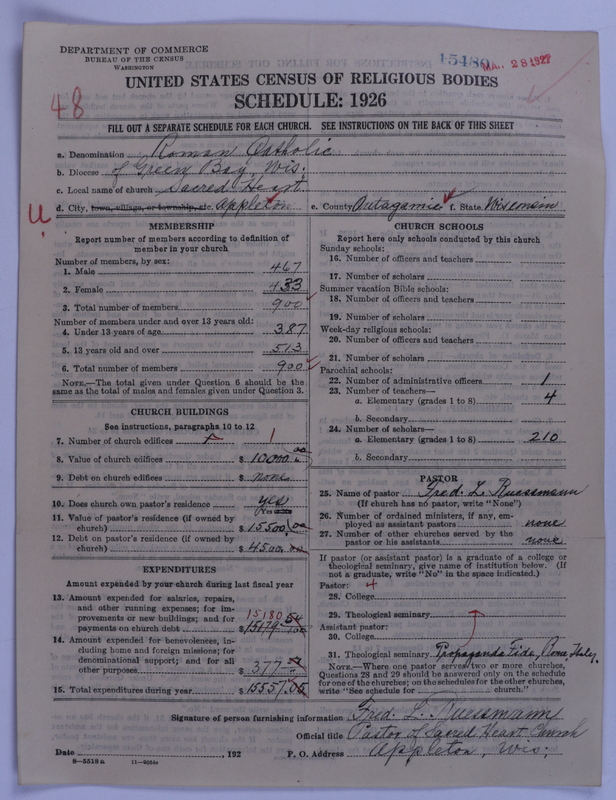 DEPARTMENT OF COMMERCE
BUREAU OF THE CENSUS
WASHINGTON
15480
MAR 28 1927
UNITED STATES CENSUS OF RELIGIOUS BODIES
48
SCHEDULE: 1926
FILL OUT A SEPARATE SCHEDULE FOR EACH CHURCH. SEE INSTRUCTIONS ON THE BACK OF THIS SHEET
a. Denomination Roman Catholic
b. Diocese of Green Bay, Wis.
c. Local name of church Sacred Heart
U. d. City, town, village, or township, etc. Appleton e. County Outagamie f. State Wisconsin
MEMBERSHIP
Report number of members according to definition of
member in your church
Number of members, by sex:
1. Male 467
2. Female 433
3. Total number of members 900
Number of members under and over 13 years old:
4. Under 13 years of age 387
5. 13 years old and over 513
6. Total number of members 900
NOTE.—The total given under Question 6 should be the
same as the total of males and females given under Question 3.
CHURCH BUILDINGS
See instructions, paragraphs 10 to 12
7. Number of church edifices 1
8. Value of church edifices $ 10000.00
9. Debt on church edifices $ none
10. Does church own pastor's residence yes
11. Value of pastor's residence (if owned by
church) $ 15500.00
12. Debt on pastor's residence (if owned by
church) $ 4500.00
EXPENDITURES
Amount expended by your church during last fiscal year
13. Amount expended for salaries, repairs,
and other running expenses; for im-
provements or new buildings; and for 15180
payments on church debt $ 15179.54
14. Amount expended for benevolences, in-
cluding home and foreign missions; for
denominational support; and for all
other purposes $ 377
15. Total expenditures during year $ 15557.05
CHURCH SCHOOLS
Report here only schools conducted by this church
Sunday schools:
16. Number of officers and teachers
17. Number of scholars
Summer vacation Bible schools:
18. Number of officers and teachers
19. Number of scholars
Week-day religious schools:
20. Number of officers and teachers
21. Number of scholars
Parochial schools:
22. Number of administrative officers 1
23. Number of teachers—
a. Elementary (grades 1 to 8) 4
b. Secondary
24. Number of scholars—
a. Elementary (grades 1 to 8) 210
b. Secondary
PASTOR
25. Name of pastor Fred. L. Ruessmann
(If church has no pastor, write "None")
26. Number of ordained ministers, if any, em-
ployed as assistant pastors none
27. Number of other churches served by the
pastor or his assistants none
If pastor (or assistant pastor) is a graduate of a college or
theological seminary, give name of institution below. (If
not a graduate, write "No" in the space indicated.)
Pastor:
28. College
29. Theological seminary
Assistant pastor:
30. College
31. Theological seminary Propaganda Fide, Rome, Italy.
NOTE.—Where one pastor serves two or more churches,
Questions 28 and 29 should be answered only on the schedule
for one of the churches; on the schedules for the other churches,
write "See schedule for church."
Signature of person furnishing information Fred. L. Ruessmann
Official title Pastor of Sacred Heart Church
Date , 192 P. O. Address Appleton, Wis;
8—5518a 11—9054a